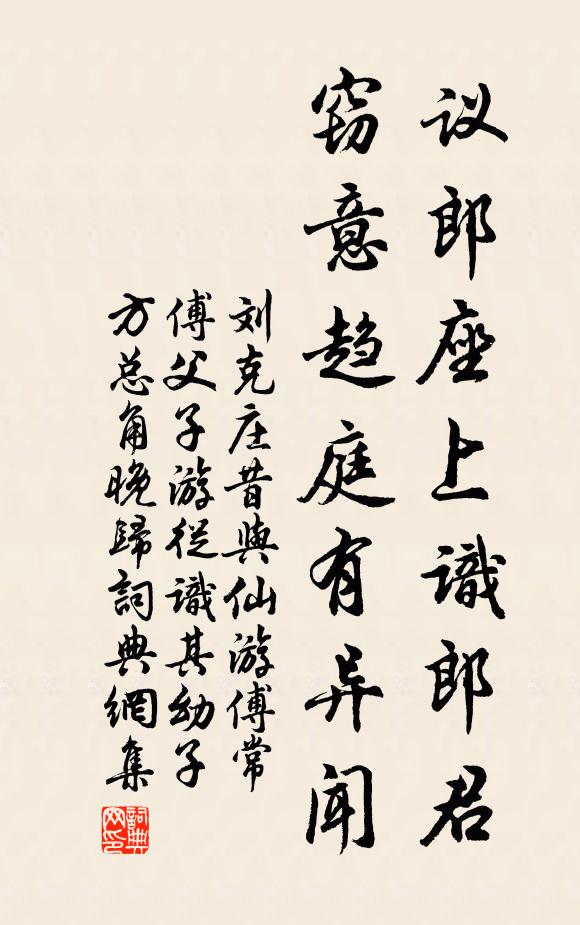 议郎座上識郎君
窃意趋庭有异聞
刘克庄昔與仙游傅常
傅父子游從識其幼子
方总角晚歸詞典網集
詞典网印